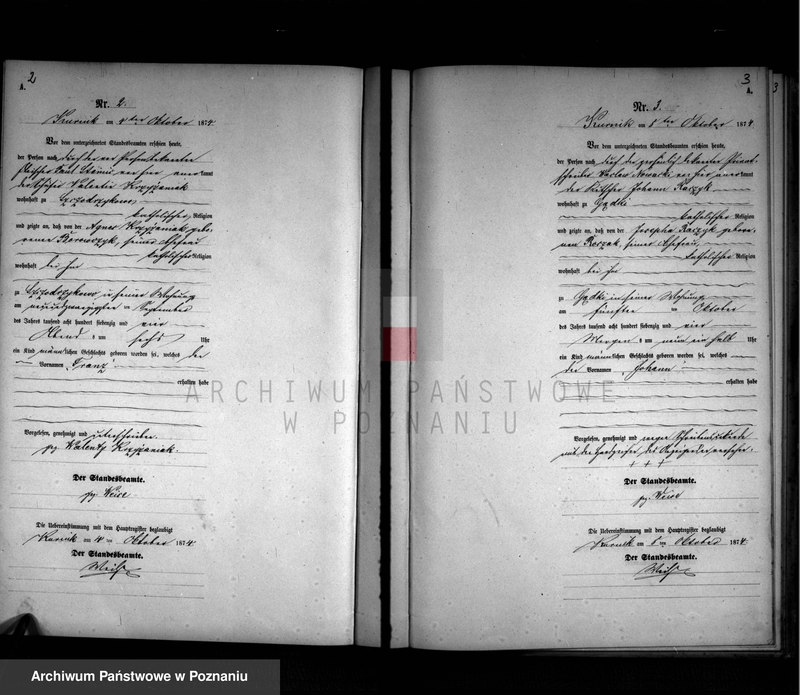 2
A.
Nr. 2.
Kurnik am 4ten Oktober 1874
Vor dem unterzeichneten Standesbeamten erschien heute,
der Person nach durch
kannt
der Valentin Krzyżaniak
wohnhaft zu
katholischer Religion
und zeigte an, daß von der Agnes Krzyżaniak gebo-
rener seiner Ehefrau
katholischer Religion
wohnhaft bei ihm
zu in seiner Wohnung
am neunundzwanzigsten ten September
des Jahres tausend acht hundert siebenzig und vier
Abend s um sechs Uhr
ein Kind männlichen Geschlechts geboren worden sei, welches den
Vornamen Franz
erhalten habe
Vorgelesen, genehmigt und unterschrieben
gz. Walenty Krzyżaniak.
Der Standesbeamte.
gz. Weise
Die Uebereinstimmung mit dem Hauptregister beglaubigt
Kurnik am 4 ten Oktober 1874.
Der Standesbeamte.
Weise
3
A.
Nr. 3.
Kurnik am 8 ten Oktober 1874
Vor dem unterzeichneten Standesbeamten erschien heute,
der Person nach durch den persönlich bekannten
schreiber Nowacki kannt
der Johann Karzyk
wohnhaft zu Gądki
katholischer Religion
und zeigte an, daß von der Josepha Karzyk gebore-
nen seiner Ehefrau
katholischer Religion
wohnhaft bei ihm
zu Gądki in seiner Wohnung
am fünften ten Oktober
des Jahres tausend acht hundert siebenzig und vier
Morgen s um neun ein halb Uhr
ein Kind männlichen Geschlechts geboren worden sei, welches
den Vornamen Johann
erhalten habe
Vorgelesen, genehmigt und wegen
mit den Handzeichen des
+ + +
Der Standesbeamte.
gz. Weise
Die Uebereinstimmung mit dem Hauptregister beglaubigt
Kurnik am 8 ten Oktober 1874.
Der Standesbeamte.
Weise
3
ARCHIWUM PAŃSTWOWE
W POZNANIU
Archiwum Państwowe w Poznaniu